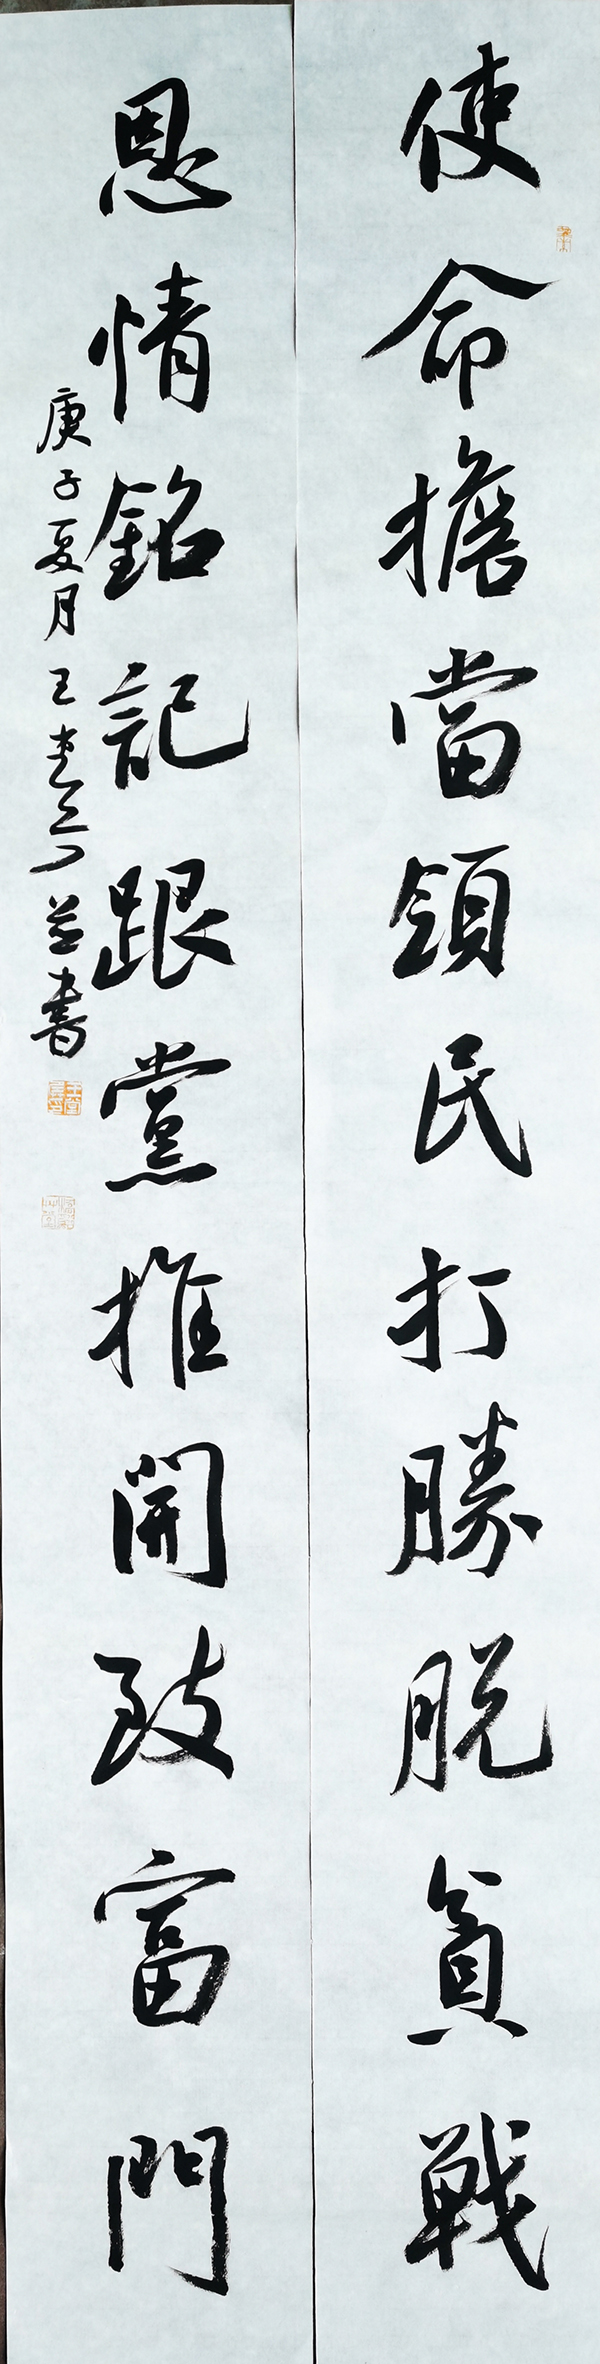 使命擔當領民打勝脱貧戰
恩情銘記跟黨推開致富門
庚子夏月王書